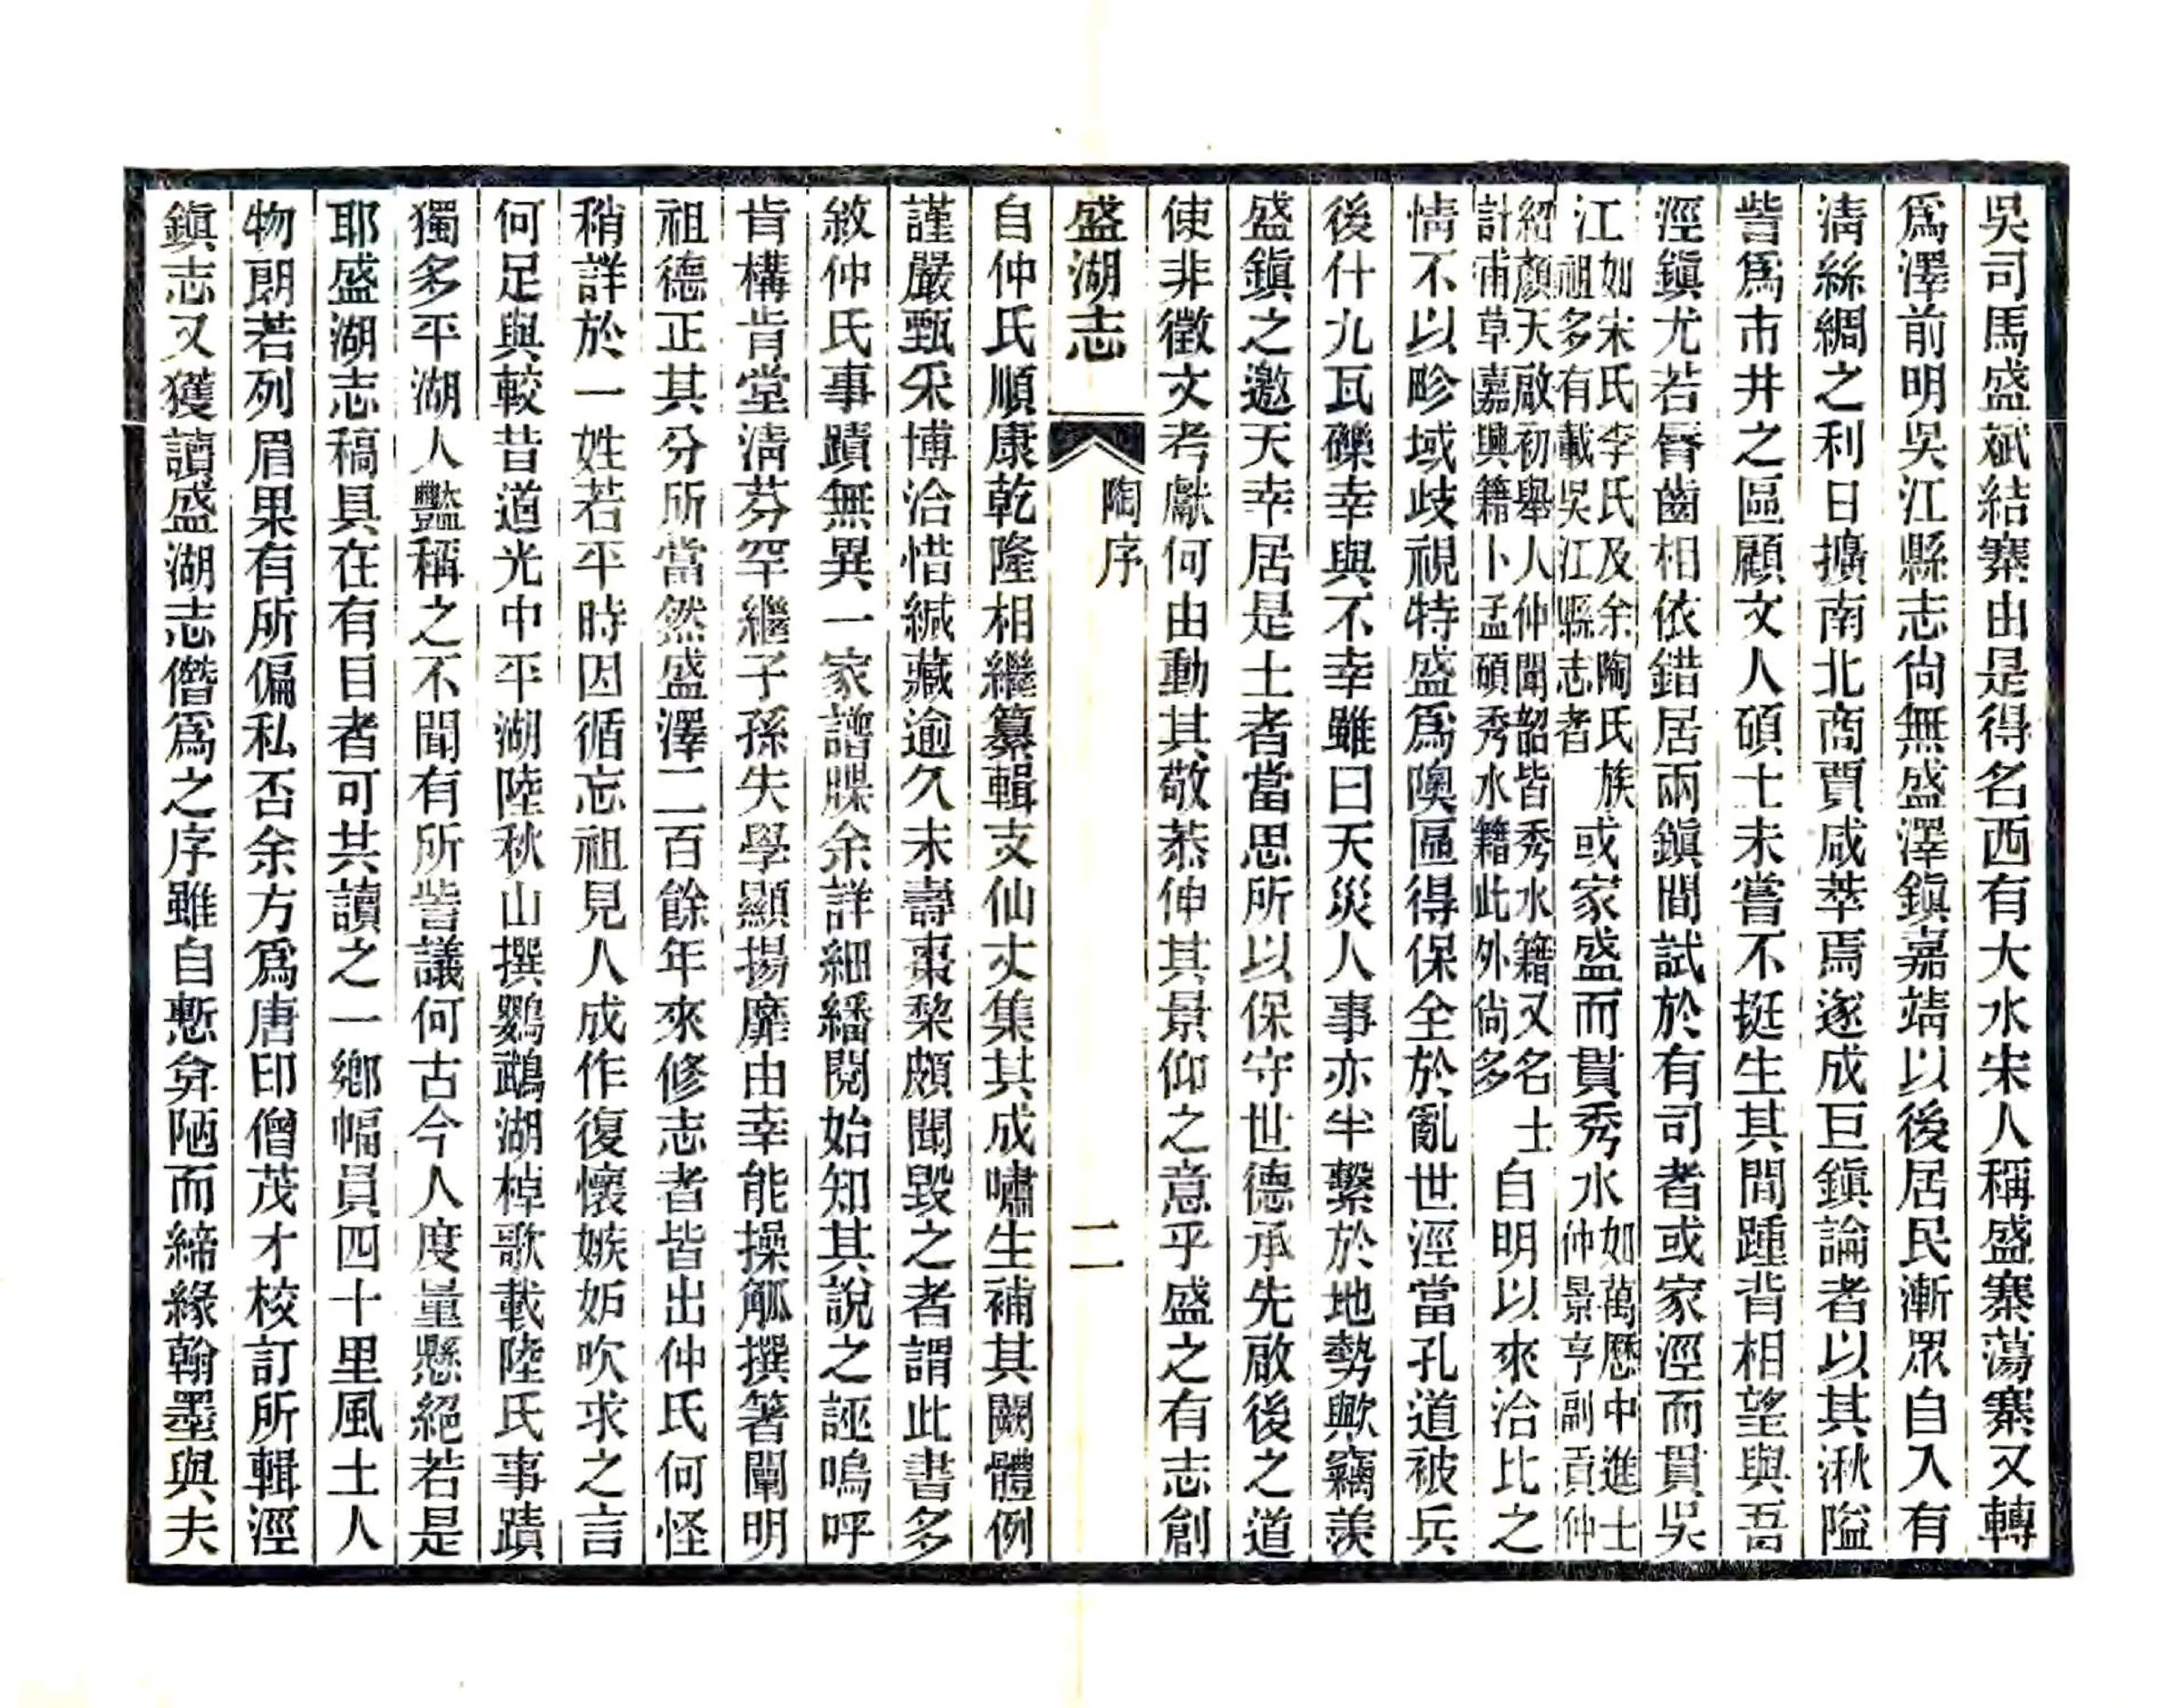 吳司馬盛斌結寨由是得名西有大水宋人稱盛寨蕩寨又轉
爲澤前明吳江縣志尙無盛澤鎭嘉靖以後居民漸眾自入有
淸絲綢之利日擴南北商賈咸萃焉遂成巨鎭論者以其湫隘
訾爲市井之區顧文人碩士未嘗不挺生其間踵背相望與吾
涇鎭尤若脣齒相依錯居兩鎭間試於有司者或家涇而貫吳
江如宋氏李氏及余陶氏族祖多有載吳江縣志者或家盛而貫秀水如萬歷中進士仲景亨副貢仲
紹顏天啟初舉人仲聞韶皆秀水籍又名士計甫草嘉興籍卜孟碩秀水籍此外尙多自明以來洽比之
情不以畛域歧視特盛爲隩區得保全於亂世涇當孔道被兵
後什九瓦礫幸與不幸雖曰天災人事亦半繫於地勢歟竊羨
盛鎭之邀天幸居是土者當思所以保守世德承先啟後之道
使非徵文考獻何由動其敬恭伸其景仰之意乎盛之有志創
盛湖志
陶序
二
自仲氏順康乾隆相繼纂輯支仙丈集其成嘯生補其闕體例
謹嚴甄采博洽惜緘藏逾久未壽棗棃頗聞毀之者謂此書多
敘仲氏事蹟無異一家譜牒余詳細繙閱始知其說之誣嗚呼
肯構肯堂淸芬罕繼子孫失學顯揚靡由幸能操觚撰箸闡明
祖德正其分所當然盛澤二百餘年來修志者皆出仲氏何怪
稍詳於一姓若平時因循忘祖見人成作復懷嫉妒吹求之言
何足與較昔道光中平湖陸秋山撰鸚鵡湖棹歌載陸氏事蹟
獨多平湖人豔稱之不聞有所訾議何古今人度量懸絕若是
耶盛湖志稿具在有目者可共讀之一鄕幅員四十里風土人
物朗若列眉果有所偏私否余方爲唐印僧茂才校訂所輯涇
鎭志又獲讀盛湖志僭爲之序雖自慙弇陋而締緣翰墨與夫